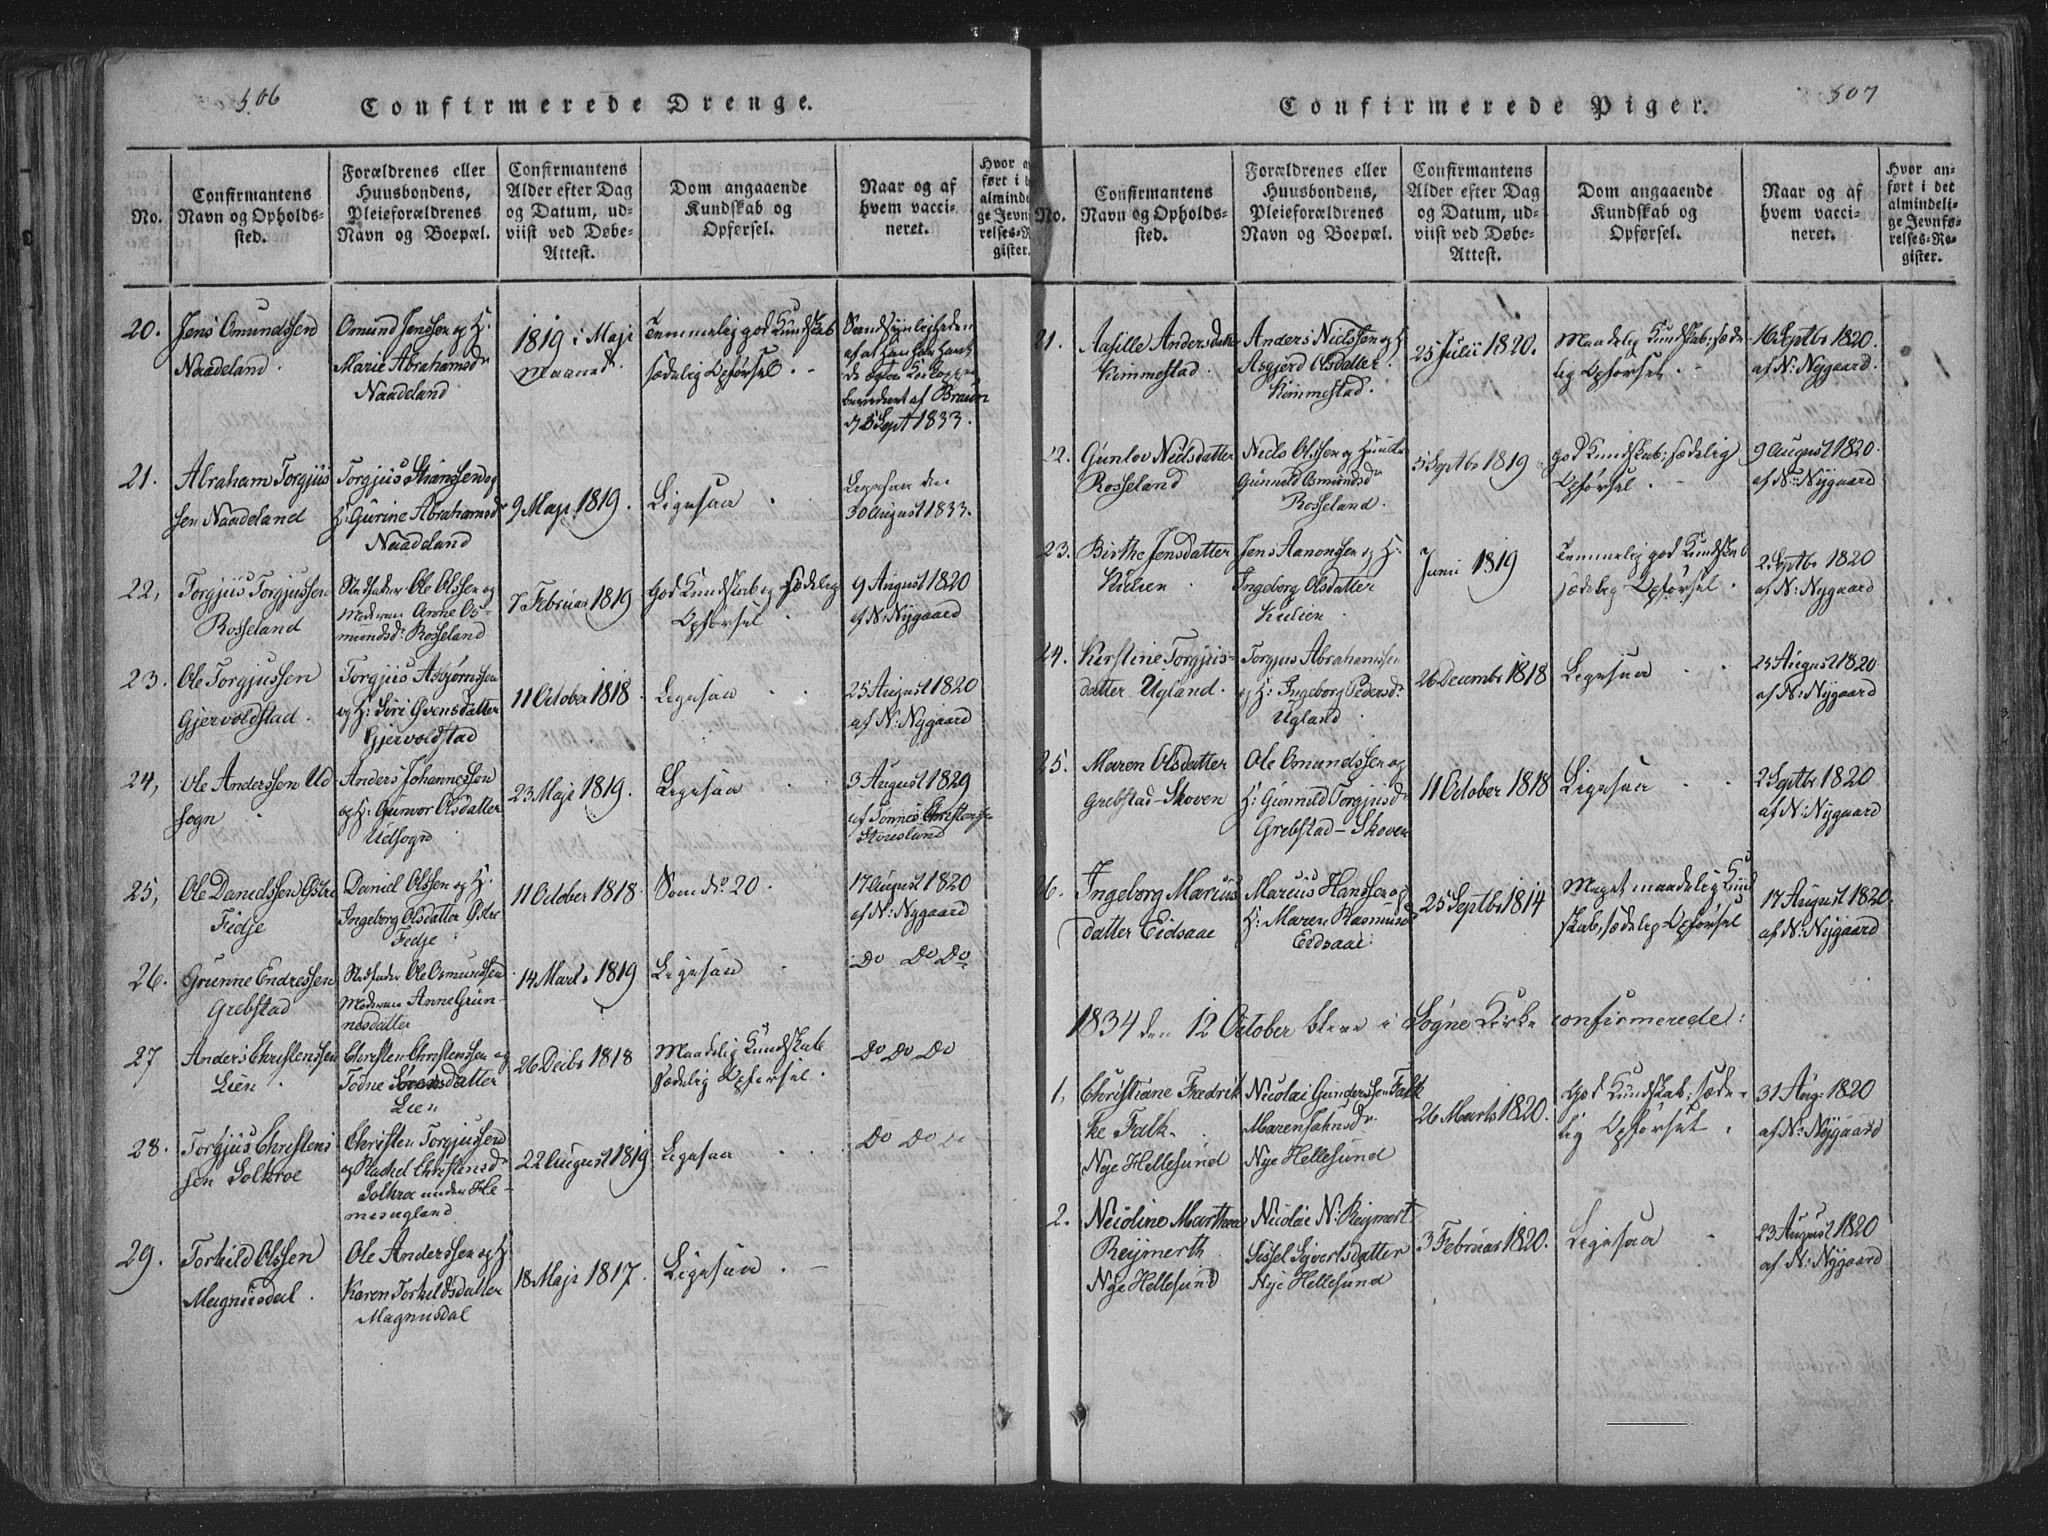 506
Confirmerede Drenge.
No.
Confirmantens
Navn og Opholds-
sted.
Forældrenes eller
Huusbondens,
Pleieforældrenes
Navn og Boepæl.
Confirmantens
Alder efter Dag
og Datum, ud-
viist ved Døbe-
Attest.
Dom angaaende
Kundskab og
Opførsel.
Naar og af
hvem vacci-
neret.
Hvor
ført i
alminde
ge Jevn
relses-R
gister.
20.
Jens Omundssen
Naadeland.
Omund Jenssen og H:
Marie Abrahamsdr
Naadeland
1819 i Maji
Maaned.
Temmelig god Kundskab
sædelig Opførsel.
af Braun
d 5 Sept 1833.
21.
Abraham Torgjus
sen Naadeland
Torgjus
H: Gurine Abrahamsdr
Naadeland
9 Maji 1819.
Ligesaa
Ligesaa den
30 August 1833.
22,
Torgjus Torgjussen
Rosseland
Stedfader Ole Olssen og
Moderen Anne Os-
mundsdr Rosseland
7 Februar 1819
God Kundskab og sædelig
Opførsel
9 August 1820
af N: Nygaard
23.
Ole Torgjussen
Gjervoldstad.
Torgjus Asbjørnssen
og H: Siri Evensdatter
Gjervoldstad
11 October 1818.
Ligesaa
25 August 1820
af N: Nygaard
24,
Ole Anderssen Ud
sogn
Anders Johannessen
og H: Gunvor Olsdatter
Udsogn
23 Maji 1819.
Ligesaa
3 August 1829
af Tønnes Christens
25,
Ole Danielssen Østre
Fidje
Daniel Olssen og H:
Ingeborg Olsdatter Østre
Fedje
11 October 1818.
Som No 20.
17 August 1820
af N: Nygaard
26.
Grunne Endressen
Grebstad
Stedfader Ole Osmundssen
Moderen Anne Grun-
nesdatter
14 Marts 1819
Ligesaa
Do Do Do
27
Anders Christenssen
Lien.
Christen Christenssen og
Todne Sørensdatter
Lien
26 Decbr 1818
Maadelig Kundskab
sædelig Opførsel.
Do Do Do
28.
Torgjus Christens
sen Solbroe
Christen Torgjussen
og Rachel Christensdr
under He-
mesugland
22 August 1819
Ligesaa
Do Do Do
29.
Torkild Olssen
Magnusdal.
Ole Anderssen og H:
Karen Torkildsdatter
Magnusdal
18 Maji 1817.
Ligesaa.
507
Confirmerede Piger.
No.
Confirmantens
Navn og Opholds-
sted.
Forældrenes eller
Huusbondens,
Pleieforældrenes
Navn og Boepæl.
Confirmantens
Alder efter Dag
og Datum, ud-
viist ved Døbe-
Attest.
Dom angaaende
Kundskab og
Opførsel.
Naar og af
hvem vacci-
neret.
Hvor an-
ført i det
almindeli-
ge Jevnfø-
relses-Re-
gister.
21.
Aasille Andersdatter
Kommestad.
Anders Nielssen og H
Asgjerd Olsdatter
Kommestad.
25 Julii 1820.
Maadelig Kundskab; sæde
lig Opførsel.
16 Septbr 1820.
af N: Nygaard.
22.
Gunlov Nielsdatter
Rosseland
Niels Olssen og Huustr
Gunneld Osmundsdr
Rosseland.
5 Septbr 1819
god Kundskab; sædelig
Opførsel.
9 August 1820.
af N: Nygaard
23.
Birthe Jensdatter
Jens Aanonssen og H:
Ingeborg Olsdatter
Junii 1819
Temmelig god Kundskab
sædelig Opførsel
2 Septbr 1820
af N: Nygaard
24.
Kirstine Torgjus-
datter Ugland.
Torgjus Abrahamssen
og H: Ingeborg Pedersdr
Ugland
26 Decembr 1818
Ligesaa
25 August 1820
af N: Nygaard
25.
Maren Olsdatter
Grebstad-Skoven
Ole Omundssen og
H: Gunnild Torgjusdr
Grebstad-Skoven
11 October 1818
Ligesaa
2 Septbr 1820
af N: Nygaard
26.
Ingeborg Marcus
datter Eidsaae
Marcus Hanssen og
H: Maren Rasmusdr
Eidsaae:
25 Septbr 1814
Meget maadelig Kund
skab, sædelig Opførsel
17 August 1820.
af N: Nygaard
1834 den 12 October bleve i Søgne Kirke confirmerede:
1,
Christiane Fredrik
ke Falk.
Nye Hellesund
Nicolai Gunderssen Falk
Maren Jahnsdr
Nye Hellesund
26 Marts 1820.
God Kundskab; sæde-
lig Opførsel.
31 Aug: 1820
af N: Nygaard
2.
Nicoline Marthea
Reymerth
Nye Hellesund
Nicolai N: Reymert
Sissel Sivertsdatter
Nye Hellesund
3 Februar 1820.
Ligesaa
23 August 1820
af N: Nygaard